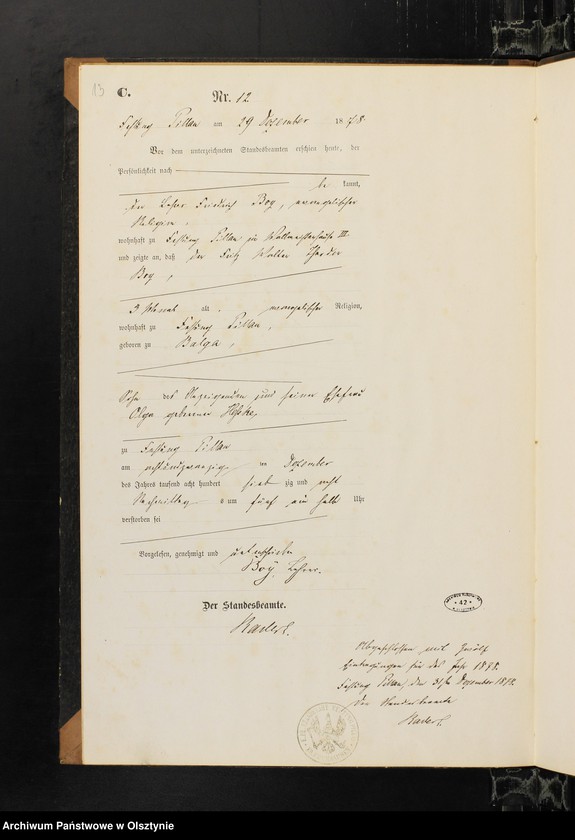 13
C.
Nr. 12
Festung Pillau am 29 Dezember 1878
Vor dem unterzeichneten Standesbeamten erschien heute, der
Persönlichkeit nach
be kannt,
der Lehrer Friedrich Boy, evangelischer
Religion,
wohnhaft zu Festung Pillau im
und zeigte an, daß der Fritz Walter
Boy,
3 Monat alt, evangelischer Religion,
wohnhaft zu Festung Pillau,
geboren zu Balga,
Sohn des Anzeigenden und seiner Ehefrau
Olga geborenen
zu Festung Pillau
am achtundzwanzig ten Dezember
des Jahres tausend acht hundert sieb zig und acht
Nachmittags um fünf ein halb Uhr
verstorben sei
Vorgelesen, genehmigt und unterschrieben
Boy, Lehrer.
Der Standesbeamte.
42
Abgeschlossen mit zwölf
Eintragungen für das Jahr 1878.
Festung Pillau, den 31ten Dezember 1878.
Der Standesbeamte
Archiwum Państwowe w Olsztynie